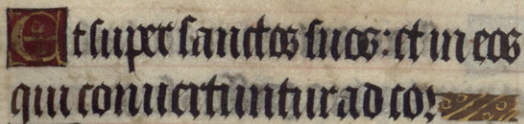 Et super sanctos suos: et in eos
qui convertuntur ad co2